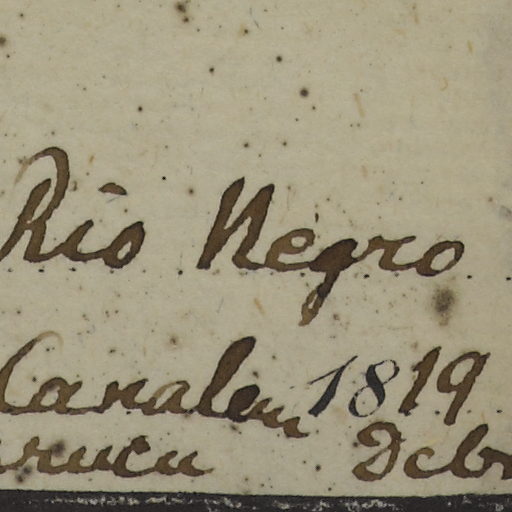 Rio Negro
Canalem 1819
arucu Debr